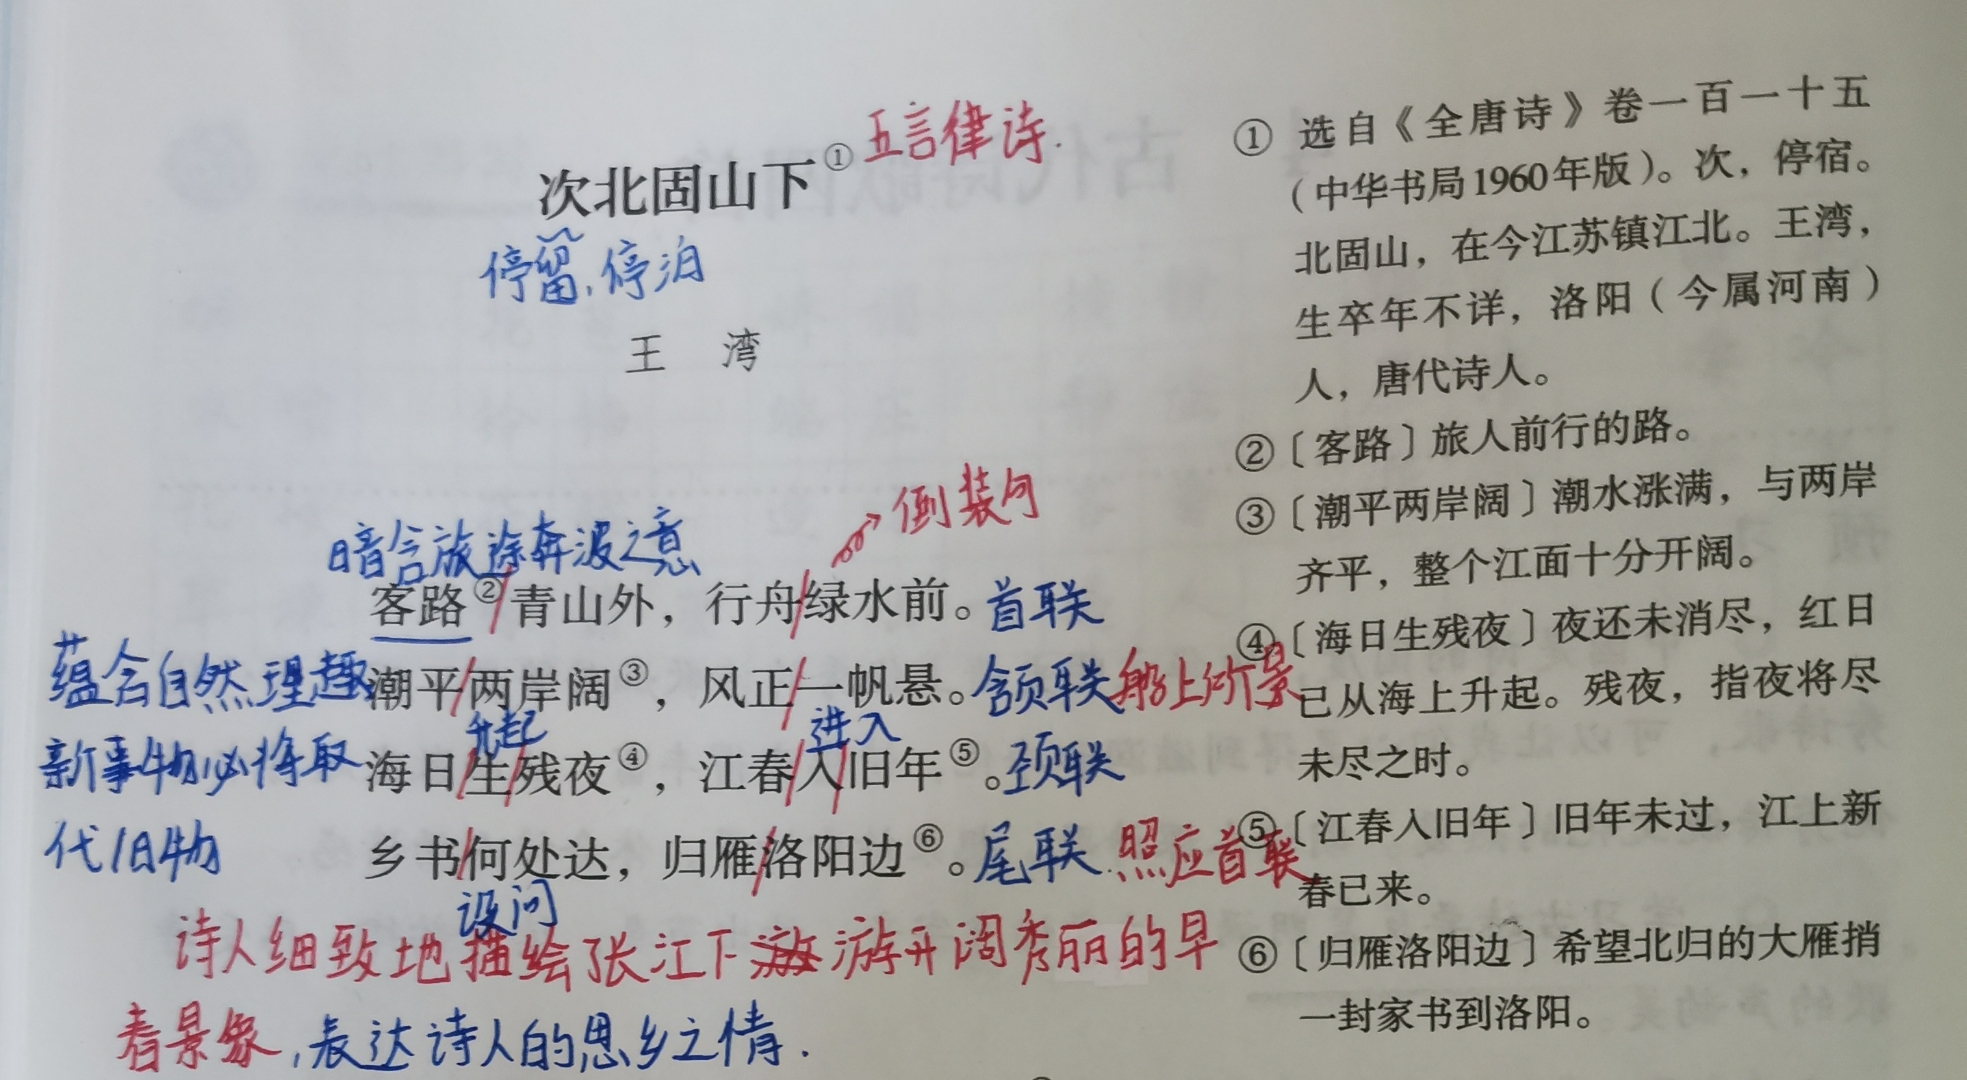 次北固山下① 五言律诗.
停留,停泊
王 湾
倒装句
暗含旅途奔波之意
客路②青山外，行舟绿水前。首联
蕴含自然理趣
潮平两岸阔③，风正一帆悬。颔联 船上所景
升起 进入
新事物必将取
海日生残夜④，江春入旧年⑤。颈联
代旧物
乡书何处达，归雁洛阳边⑥。尾联.照应首联
设问
诗人细致地描绘张江下游开阔秀丽的早
春景象,表达诗人的思乡之情.
① 选自《全唐诗》卷一百一十五
（中华书局1960年版）。次，停宿。
北固山，在今江苏镇江北。王湾，
生卒年不详，洛阳（今属河南）
人，唐代诗人。
②〔客路〕旅人前行的路。
③〔潮平两岸阔〕潮水涨满，与两岸
齐平，整个江面十分开阔。
④〔海日生残夜〕夜还未消尽，红日
已从海上升起。残夜，指夜将尽
未尽之时。
⑤〔江春入旧年〕旧年未过，江上新
春已来。
⑥〔归雁洛阳边〕希望北归的大雁捎
一封家书到洛阳。